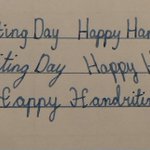 ting Day Happy Han
iting Day Happy H
Happy Handritin